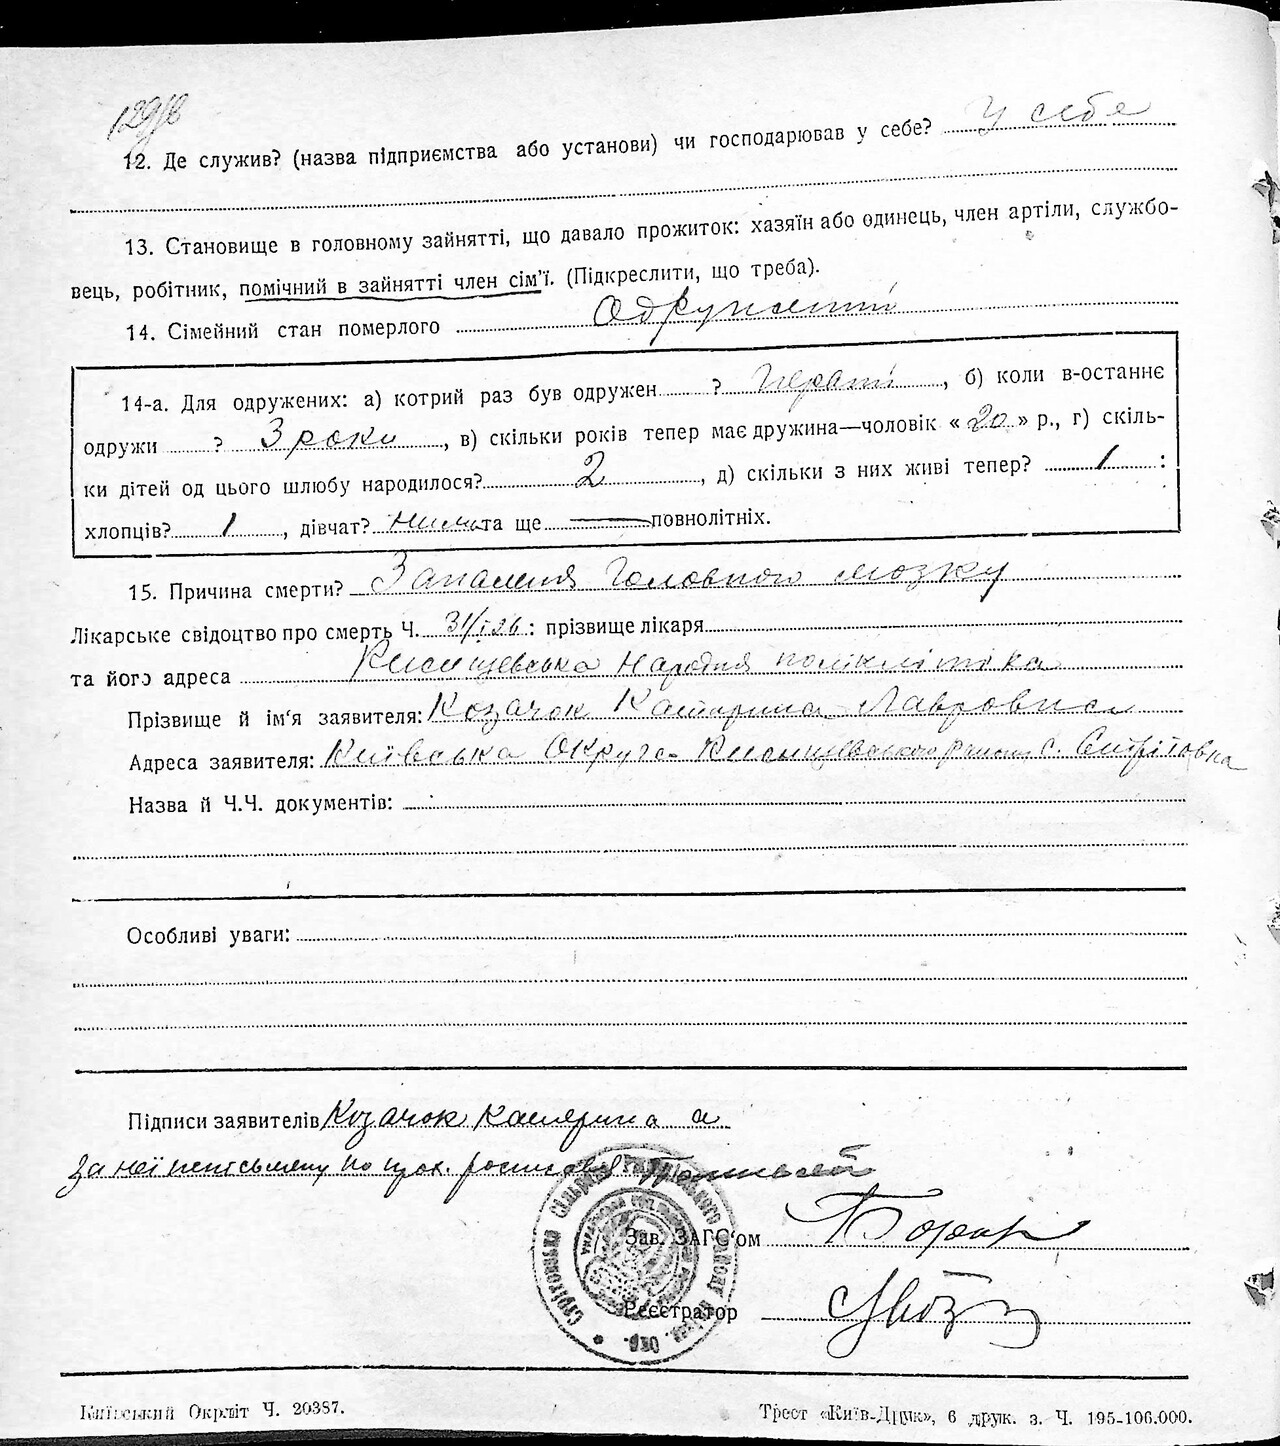 129/в
12. Де служив? (назва підприємства або установи) чи господарював у себе? У себе
13. Становище в головному зайнятті, що давало прожиток: хазяїн або одинець, член артіли, службо-
вець, робітник, помічний в зайнятті член сім'ї. (Підкреслити, що треба).
14. Сімейний стан померлого Одружений
14-а. Для одружених: а) котрий раз був одружен ? Перший, б) коли в-останнє
одружи ? 3 роки, в) скільки років тепер має дружина—чоловік «20» р., г) скіль-
ки дітей од цього шлюбу народилося? 2, д) скільки з них живі тепер? 1 :
хлопців? 1, дівчат? Нима та ще — повнолітніх.
15. Причина смерти? Запаленя Головного мозку
Лікарське свідоцтво про смерть Ч. 31/I 26 : прізвище лікаря
та його адреса народня поліклініка
Прізвище й ім'я заявителя: Козачок Катерина Лавровна
Адреса заявителя: Київська Округа району с. Стрітовка
Назва й Ч.Ч. документів:
Особливі уваги:
Підписи заявителів Козачок Катерина а
за неї неписьмену по прох. росписався
Зав. ЗАГС'ом
Реєстратор
Київський Окрліт Ч. 20387.
Трест «Київ-Друк», 6 друк. з. Ч. 195-106.000.